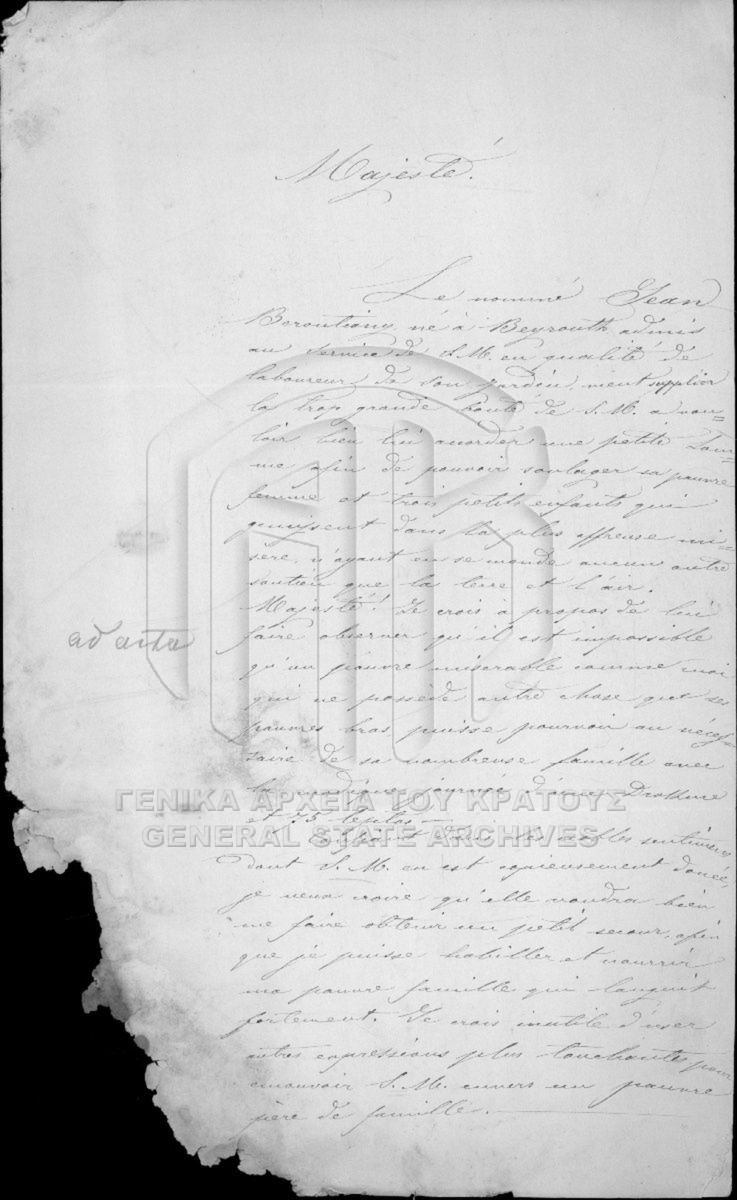 Majesté!
Le nommé Jean
né à Beyrouth admis
au service de S.M. en qualité de
laboureur de son jardin, vient supplier
la trop grande bonté de S.M. a vou=
loir bien lui accorder une petite Som=
me afin de pouvoir soulager sa pauvre
femme et trois petits enfants qui
dans la plus affreuse mi=
sère, n'ayant en se monde aucun autre
soutien que la et l'air.
Majesté! Je crois a propos de lui
faire observer qu'il est impossible
ad acta
qu'un pauvre miserable comme moi
qui ne possède autre chose que ses
pauvres bras puisse pourvoir au néces
saire de sa nombreuse famille avec
la modique journée d'une
et 75
ΓΕΝΙΚΑ ΑΡΧΕΙΑ ΤΟΥ ΚΡΑΤΟΥΣ
GENERAL STATE ARCHIVES
sentimens
dont S.M. en est copieusement
je veux croire qu'elle voudra bien
me faire obtenir un petit secour, afin
que je puisse habiller et nourrir
ma pauvre famille qui languit
fortement. Je crois inutile d'user
autres expressions plus touchantes pour
emouvoir S.M. envers un pauvre
père de famille.